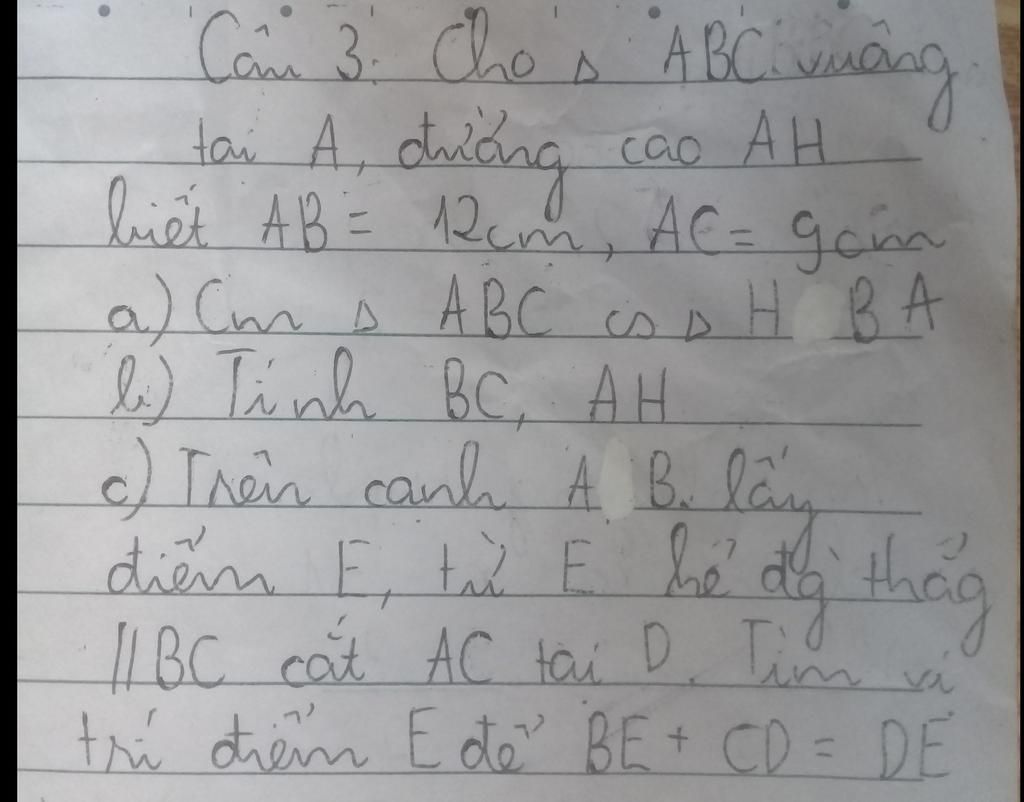 Câu 3: Cho Δ ABC vuông
tai A, đường cao AH
biết AB = 12cm, AC = 9cm
a) Cm Δ ABC ∽ Δ H BA
b) Tính BC, AH
c) Trên canh A B. lấy
điểm E, từ E kẻ đg thẳg
//BC cắt AC tai D. Tìm vi
trí điểm E để BE + CD = DE